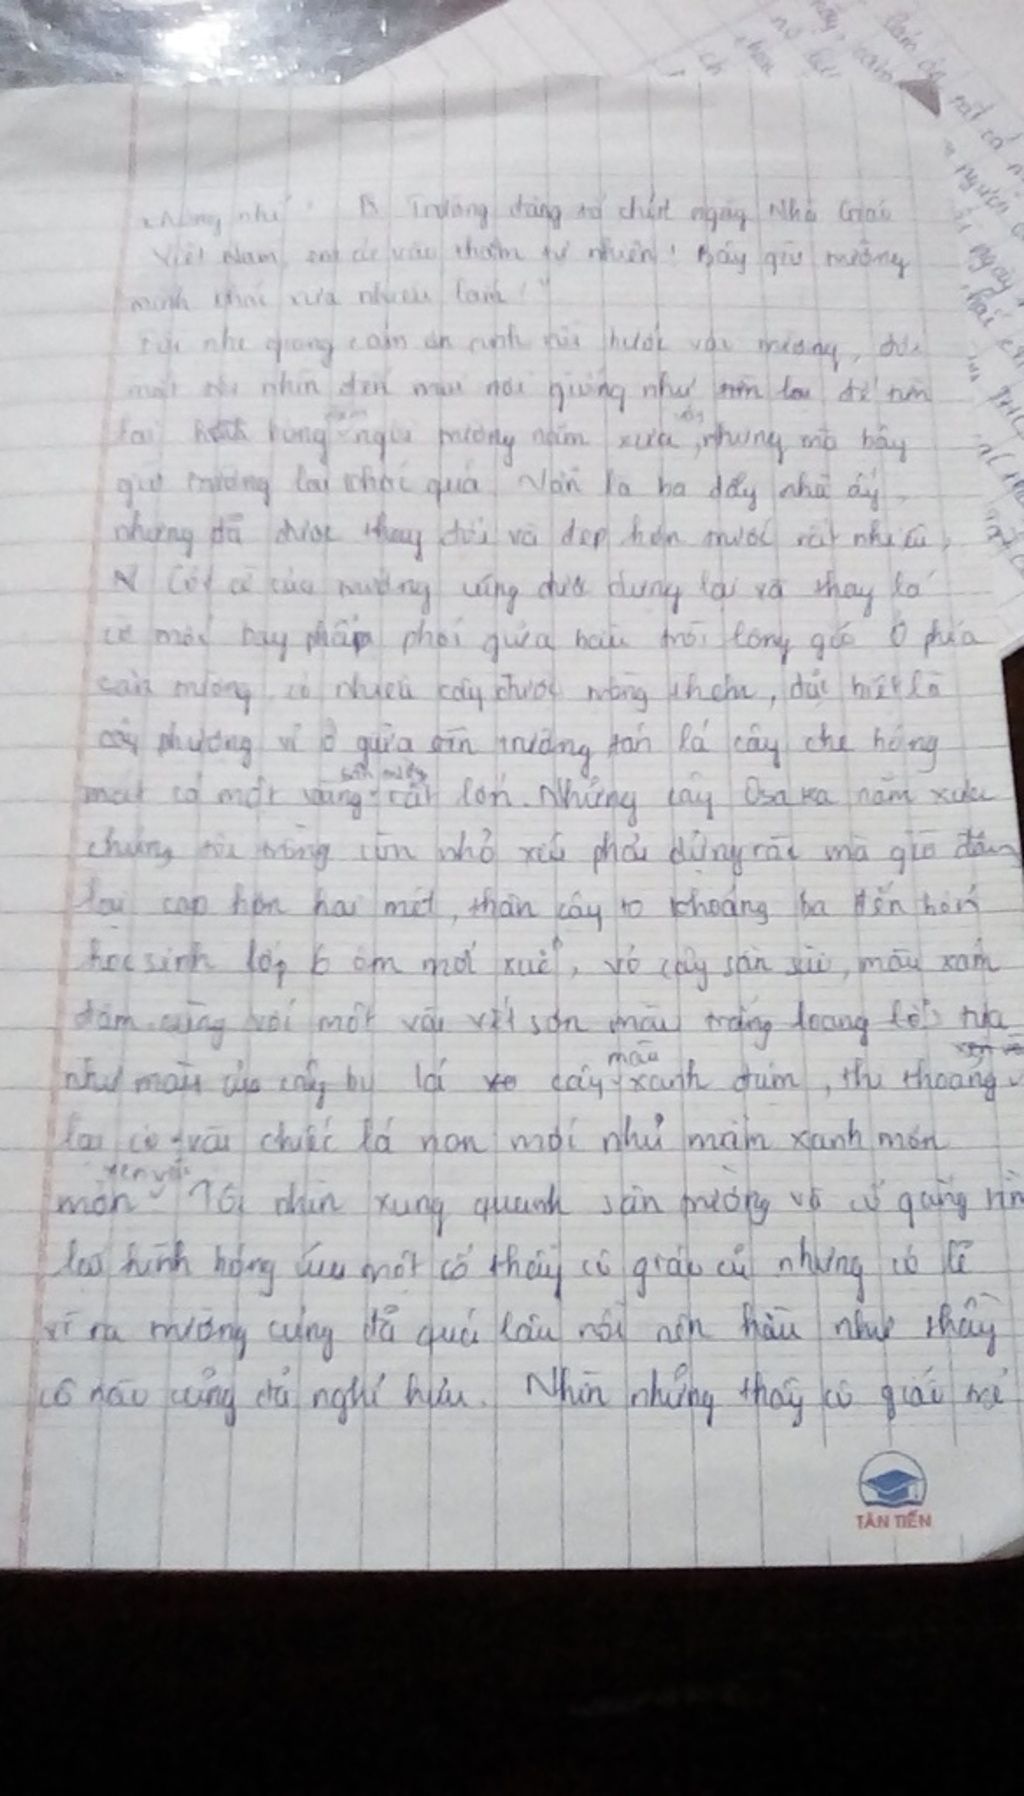 Trường đang tổ chức ngày Nhà Giáo
Việt Nam, vào thăm tự nhiên! Bây giờ trường
mình khác xưa nhiều lắm!"
nhẹ giọng cảm ơn anh rồi bước vào trường, đôi
mắt tôi nhìn đến mọi nơi giống như để tìm
lại ngôi trường năm xưa, nhưng mà bây
giờ trường lại khác quá. Vẫn là ba dãy nhà ấy,
nhưng đã được thay đổi và đẹp hơn trước rất nhiều,
Cột cờ của trường cũng được dựng lại và thay lá
cờ mới bay phấp phới giữa bầu trời lộng gió. Ở phía
sân trường, có nhiều cây được trồng thêm, đặc biệt là
cây phượng vĩ ở giữa sân trường tán lá cây che bóng
mát cả một vùng sân trường rất lớn. Những cây Osaka năm xưa
chúng tôi trồng còn nhỏ xíu phải dùng mà giờ đây
lại cao hơn hai mét, thân cây to khoảng ba đến bốn
học sinh lớp 6 ôm mới xuể, vỏ cây sần sùi, màu xám
đậm cùng với một vài vệt sơn màu trắng loang lổ tựa
như màu của cây bụ lá cây màu xanh đậm, thi thoảng
lại có vài chiếc lá non mới nhú mầm xanh mơn
mởn xen vào. Tôi nhìn xung quanh sân trường và cố gắng tìm
lại hình bóng của một cố thầy cô giáo cũ nhưng có lẽ
vì ra trường cũng đã quá lâu rồi nên hầu như thầy
cô nào cũng đã nghỉ hưu. Nhìn những thầy cô giáo trẻ
TÂN TIẾN